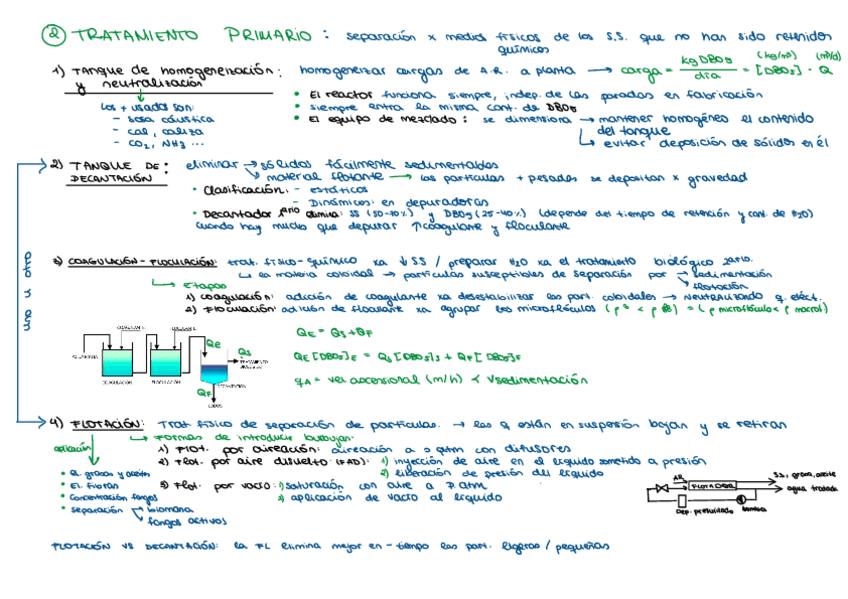 ② TRATAMIENTO PRIMARIO : separación x medios físicos de los S.S. que no han sido retenidos
químicos
1) Tanque de homogeneización : homogeneizar cargas de A.R. a planta → carga = kg DBO5 / día = [DBO5] · Q
(kg/m³) (m³/d)
y neutralización
• El reactor funciona siempre, indep. de las paradas en fabricación
los + usados son:
• siempre entra la misma cant. de DBO5
- sosa cáustica
• El equipo de mezclado : se dimensiona → mantener homogéneo el contenido
- cal, caliza
del tanque
- CO2, NH3 ...
↳ evitar deposición de sólidos en él
2) TANQUE DE : eliminar → sólidos fácilmente sedimentables
DECANTACIÓN
↘ material flotante → las partículas + pesadas se depositan x gravedad
• Clasificación: - estáticos
- Dinámicos: en depuradoras
• Decantador 1ario elimina: SS (50-70%) y DBO5 (25-40%) (depende del tiempo de retención y cont. de H2O)
cuando hay mucho que depurar ↑coagulante y floculante
uno u otro
3) COAGULACIÓN-FLOCULACIÓN: trat. físico-químico xa ↓ SS / preparar H2O xa el tratamiento biológico 2ario.
↳ la materia coloidal → partículas susceptibles de separación por → sedimentación
↘ flotación
↳ Etapas
1) COAGULACIÓN: adición de coagulante xa desestabilizar las part. coloidales → NEUTRALIZANDO q. eléct.
2) FLOCULACIÓN: adición de floculante xa agrupar los microflóculos
(ρ microflóculo < ρ macrof.)
COAGULANTE
COAGULACIÓN
FLOCULACIÓN
QE
QS
QF
LODOS
QE = QS + QF
QE [DBO5]E = QS [DBO5]S + QF [DBO5]F
qA = vel ascensional (m/h) < Vsedimentación
4) FLOTACIÓN: Trat físico de separación de partículas. → las q están en suspensión bojan y se retiran
↳ Formas de introducir burbujas:
aplicación
1) Flot. por aireación: aireación a P atm con difusores
2) Flot. por aire disuelto (FAD): 1) inyección de aire en el líquido sometido a presión
2) liberación de presión del líquido
3) Flot. por vacío: 1) saturación con aire a P atm
2) aplicación de vacío al líquido
• El. grasas y aceites
• El. fibras
• Concentración fangos
• separación → biomasa
↘ fangos activos
AR
FLOTADOR
S.S., grasa, aceite
agua tratada
Dep. presurizado
bomba
FLOTACIÓN VS DECANTACIÓN: la FL elimina mejor en - tiempo las part. ligeras / pequeñas